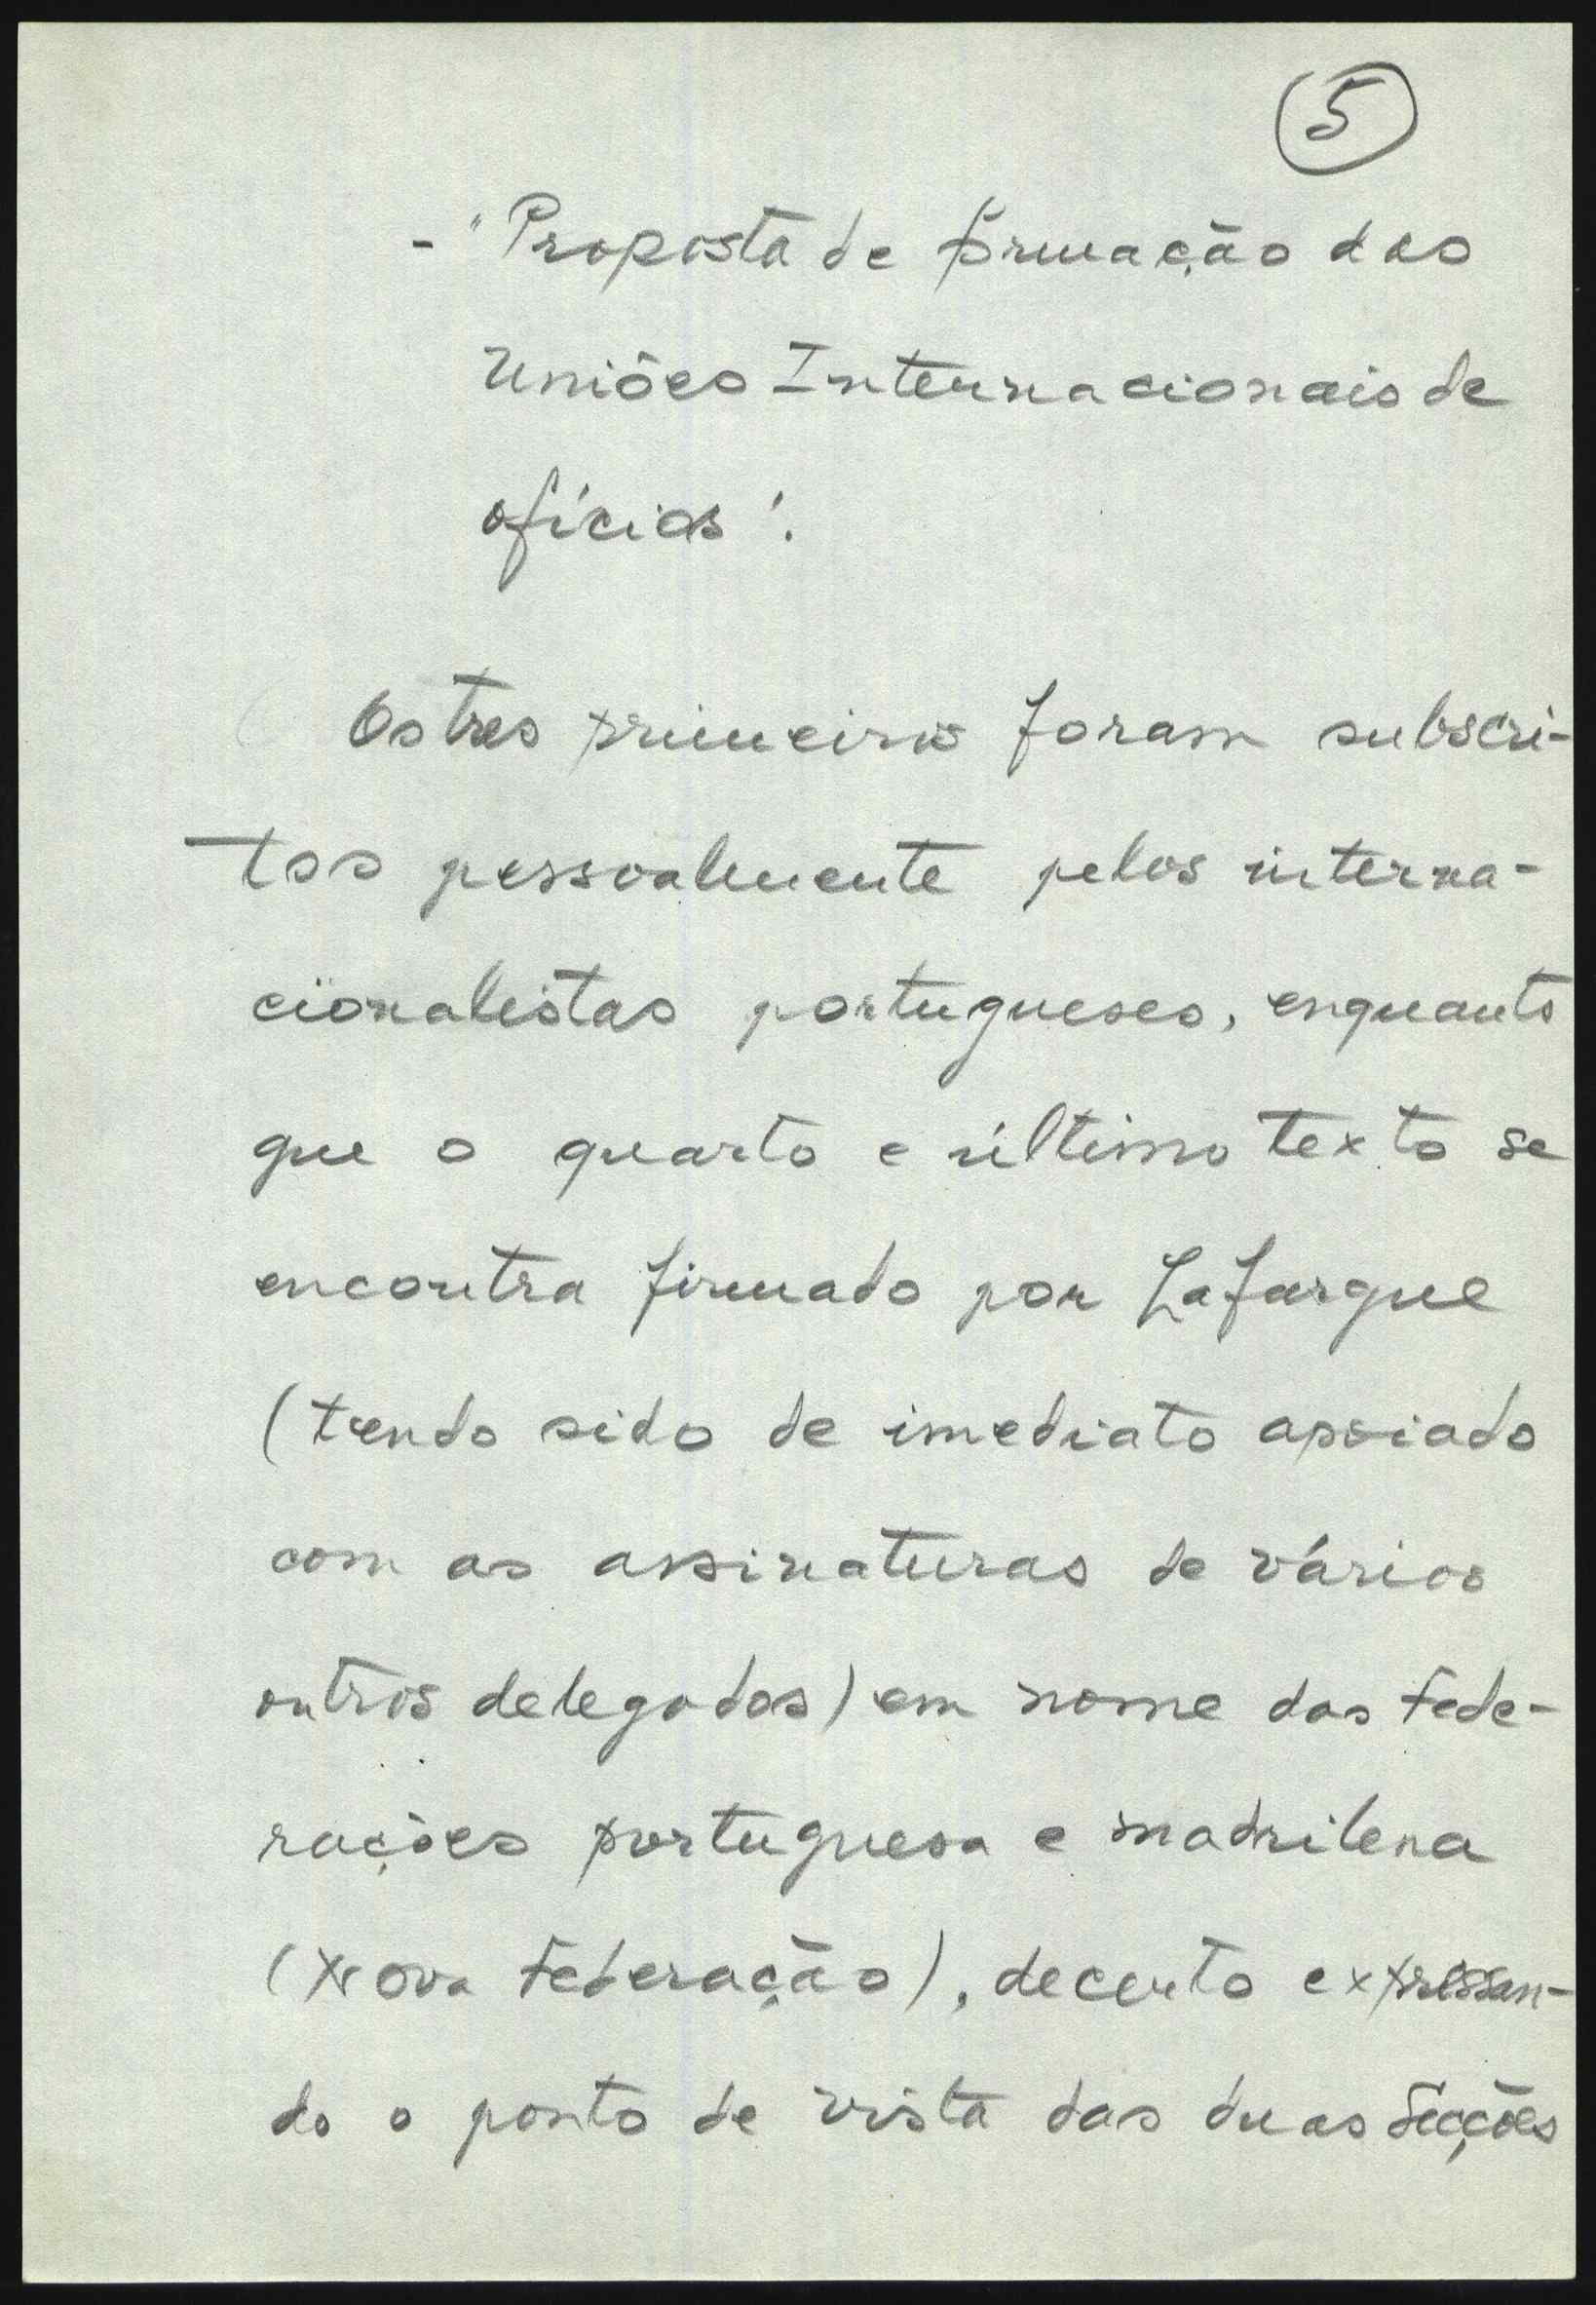 5
- "Proposta de formação das
Uniões Internacionais de
ofícios".
Os tres primeiros foram subscri-
tos pessoalmente pelos interna-
cionalistas portugueses, enquanto
que o quarto e último texto se
encontra firmado por Lafargue
(tendo sido de imediato apoiado
com as assinaturas de vários
outros delegados) em nome das Fede-
rações portuguesa e madrilena
(Nova Federação), decerto expressan-
do o ponto de vista das duas Secções